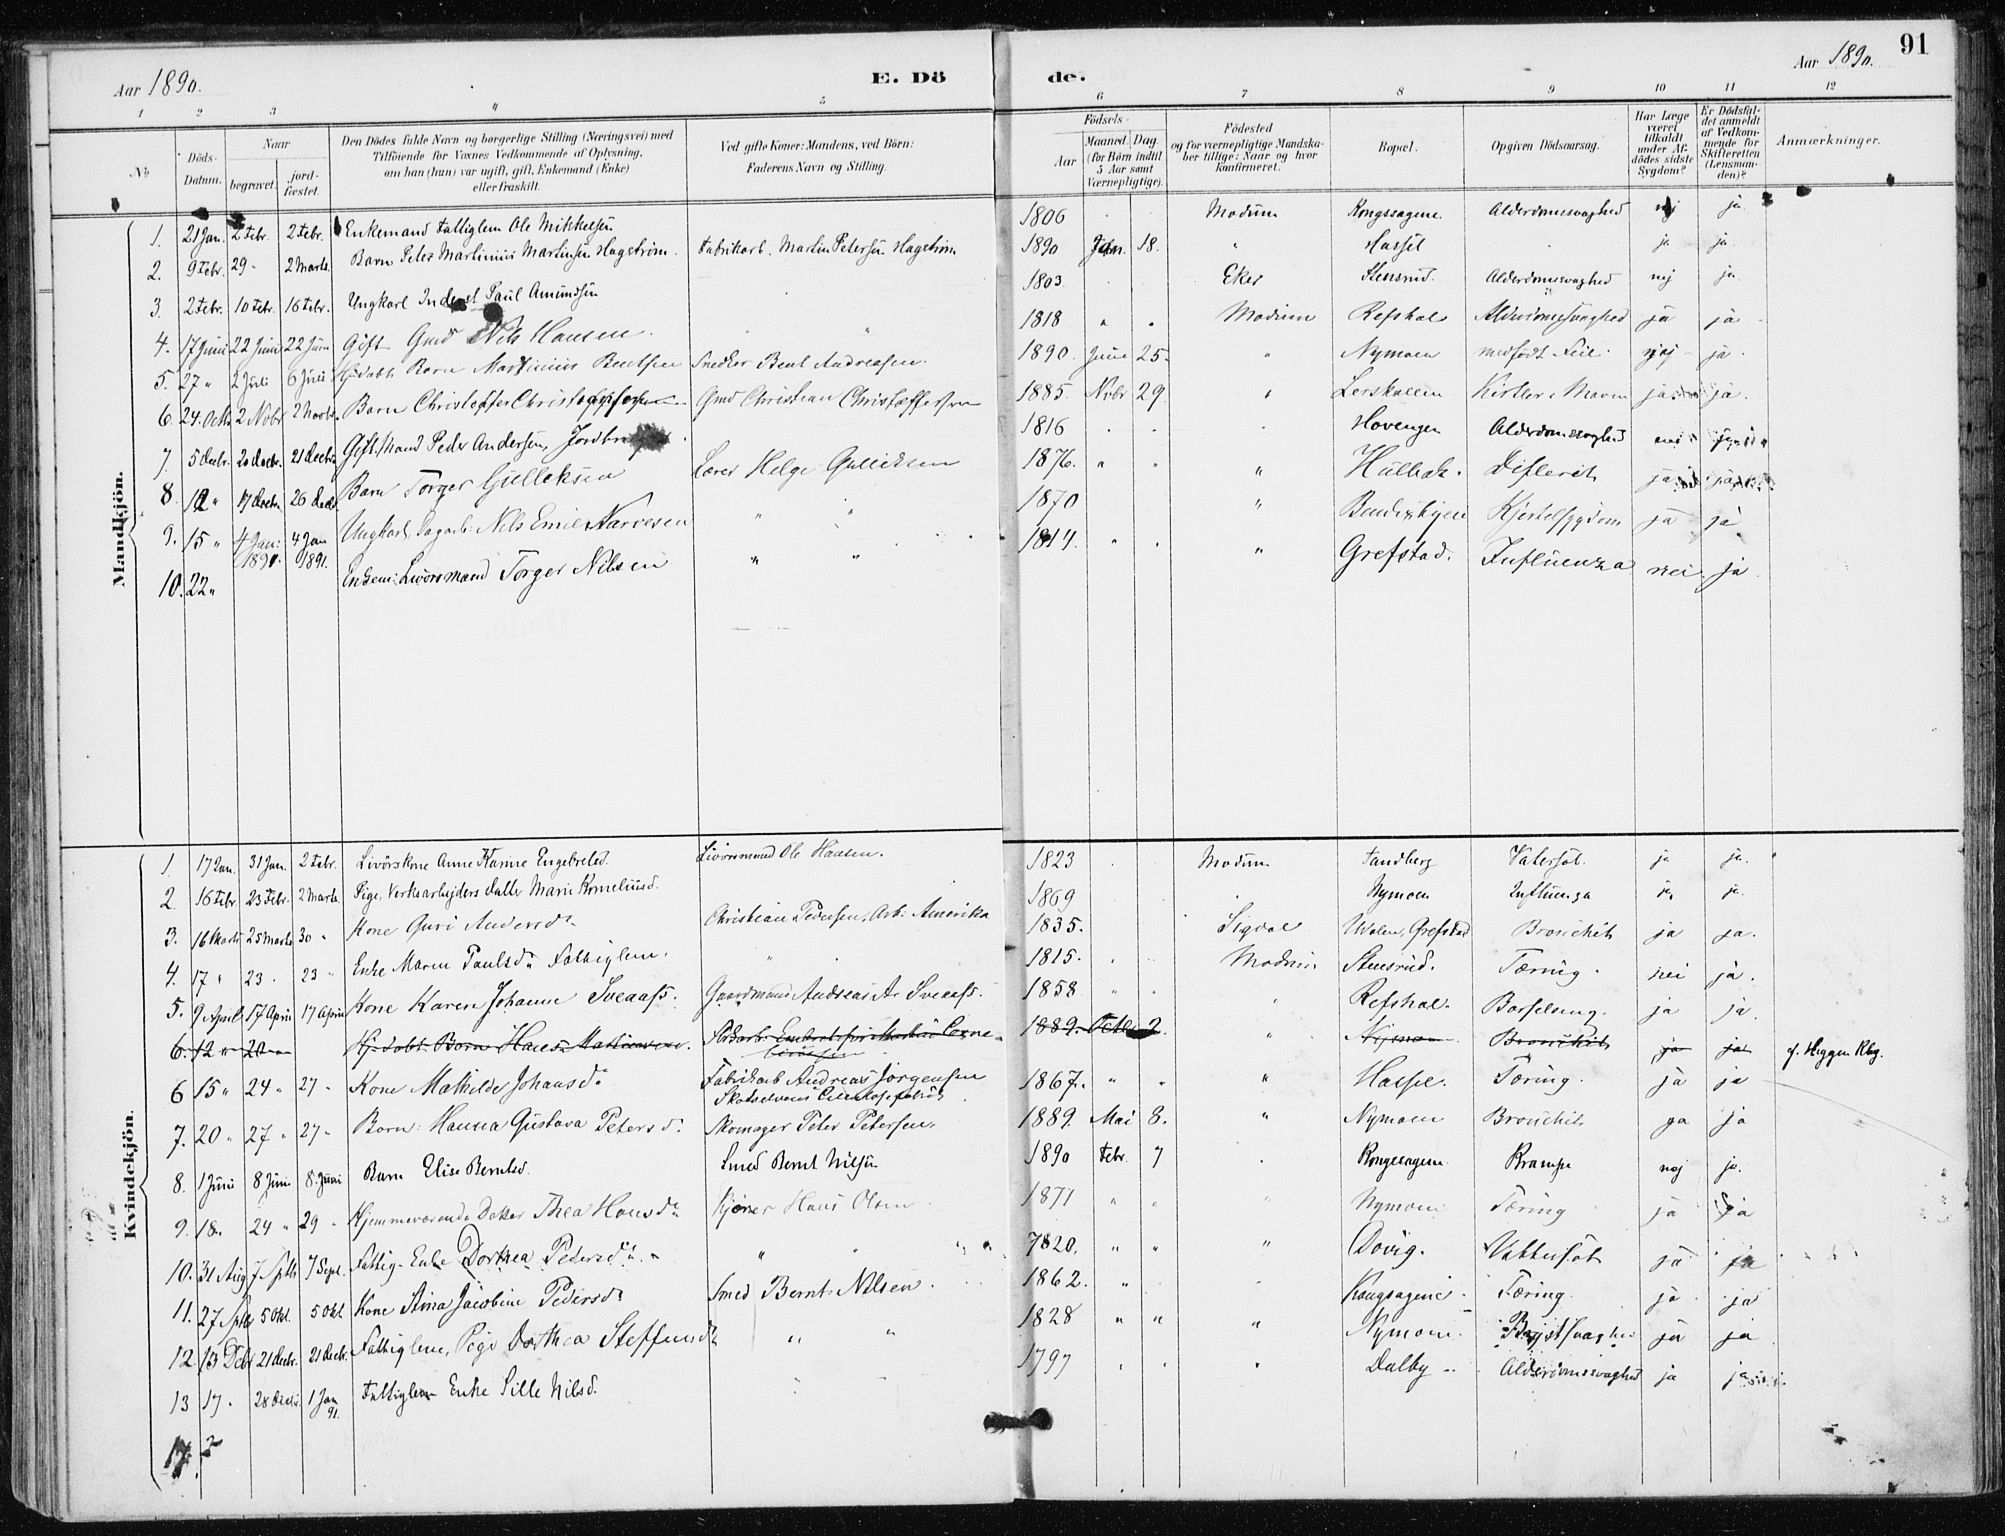 Aar 1890.
E. Dö
de.
Aar 1890.
91
1 2 3 4 5 6 7 8 9 10 11 12
No
Döds-Datum.
Naar
begravet.
jord-fæstet.
Den Dödes fulde Navn og borgerlige Stilling (Næringsvei) med
Tilföiende for Voxnes Vedkommende af Oplysning,
om han (hun) var ugift, gift, Enkemand (Enke)
eller fraskilt.
Ved gifte Koner: Mandens, ved Börn:
Faderens Navn og Stilling.
Födsels-
Aar
Maaned. Dag.
(for Börn indtil
5 Aar samt
Værnepligtige).
Födested
og for værnepligtige Mandska-
ber tillige: Naar og hvor
konfirmeret.
Bopæl.
Opgiven Dödsaarsag.
Har Læge
været
tilkaldt
under Af-
dödes sidste
Sygdom?
Er Dödsfal-
det anmeldt
af Vedkom-
mende for
Skifteretten
(Lensman-
den)?
Anmærkninger.
Mandkjön.
1. 21 Jan. 2 Febr. 2 Febr. Enkemand Fattiglem Ole Mikkelsen 1806 Modum Kongssagene Alderdomssvaghed nej ja
2. 9 Febr. 29 " 2 Marts. Barn Peter Martinius Martinsen Hagstrøm. Fabrikarb. Martin Petersen Hagstrøm 1890 Jan. 18. " Hassel ja ja
3. 2 Febr. 10 Febr. 16 Febr. Ungkarl Inderst Paul Amundsen 1803 Eker Stensrud. Alderdomssvaghed nej ja
4. 17 Juni 22 Juni 22 Juni Gift Gmd Nils Hansen. 1818 " " Modum Refshal Alderdomssvaghed ja ja
5. 27 " 2 Juli 6 Juli Hj.døbt Barn Martinius Bentsen Snedker Bent Andreasen. 1890. Juni 25. " Nymoen medfødt Feil nej ja
6. 24. Octb. 2 Novbr 2 Novbr. Barn Christoffer Christoffersen Gmd Christian Christoffersen 1885. Novbr 29 " Lerskallen Kirtler i Maven ja ja.
7. 5 Decbr. 20 Decbr. 21 Decbr. Gift Mand Peder Andersen, 1816 Hovengen Alderdomssvaghed
8. 12 " 17 Decbr. 26 Decb Barn Torger Gulleksen Lærer Helge Gulliksen 1876. " " " Difterit ja
9. 15 " 4 Jan: 1891. 4 Jan 1891. Ungkarl, Nils Emil Narvesen " " 1870 " Kjertelsygdom ja ja
10. 22 " Livörsmand Torger Nilsen " " 1814. " " " Grefstad. Influenza nei ja
Kvindekjön.
1. 17 Jan. 31 Jan. 2 Febr. Livörskone Anne Karine Engebretsd. Livörsmand Ole Hansen. 1823 Modum Sandberg Vatersot. ja ja.
2. 16 Febr. 23 Febr. 2 Marts. Pige, Verksarbejders Datter Marie Korneliusd. 1869 Nymoen Influenza ja ja
3. 16 Marts 25 Marts 30 " Kone Guri Andersdr Christian Pedersen, Arb: Amerika 1835. Sigdal Grefstad Bronchit ja ja.
4. 17 " 23 " 23 " Enke Maren Paulsdr Fattiglem. 1815. Modum Stensrud. Tæring. nei ja.
5. 9 April 17 April 17 April Kone Karen Johanne Sveaass. Gaardmand Andreas A. Sveaass. 1858 " " Refshal. Barselseng. ja ja
6. 12 " 20 Hj. døbt Barn 1889. 2. " Nymoen Bronchit ja ja f. Heggen Kbg.
6 15 " 24 " 27 " Kone Mathilde Johansdr Fabrikarb Andreas Jørgensen
Skotselvens Cellulosefabrik 1867. " " " Hassel. Tæring. ja ja
7. 20 " 27 " 27 " Barn: Hanna Gustava Petersdr. Skomager Peter Petersen. 1889. Mai 8. " Nymoen Bronchit. ja ja
8. 1 Juni 8 Juni 8. Juni Barn Elise Berntsd. Smed Bernt Nilsen 1890 Febr. 7 Kongssagene Krampe nej ja.
9. 18. 24 " 29 " Hjemmeværende Datter Thea Hansdr Hans Olsen 1871 " " " Nymoen Tæring ja ja
10. 31 Aug 7 Septb 7 Sept. Fattig-Enke Dorthea Pedersdr " " 1820. " " " Døvig. Vattersot ja ja
11. 27 Septb 5 Okt. 5 Okt Kone Stina Jacobine Pedersdr Smed Bernt Nilsen. 1862. " Kongsagene Tæring. ja ja
12. 13 Debr 21 Decbr. 21 Decbr. Fattiglem, Pige Dorthea Steffensdr " " 1828 " " " Nymoen. Brystsvaghed ja ja
13 17 " 28 Decbr 1 Jan 91. Fattiglem Enke Sille Nilsd. 1797 " " " Dalby Alderdomssvaghed ja ja